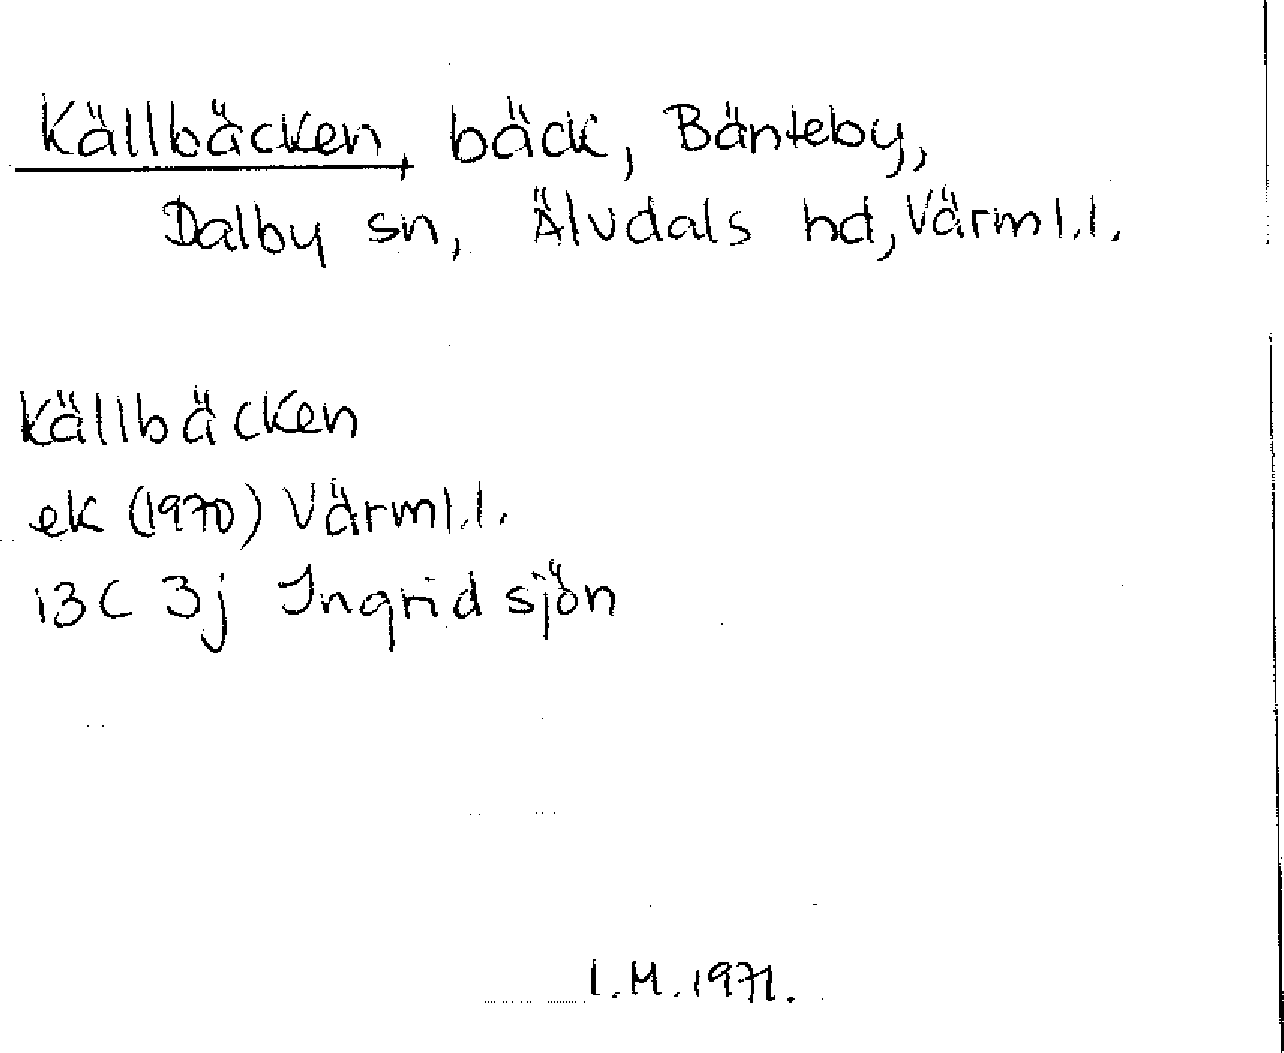 Källbäcken, bäck, Bänteby,
Dalby sn, Älvdals hd, Värml.l.
Källbäcken
ek (1970) Värml.l.
13C 3j Ingridsjön
I.M.1971.